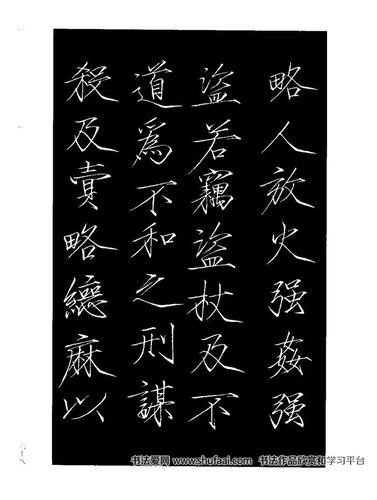 略人放火强姦强
盗若竊盗杖及不
道為不和之刑謀
殺及賣略緦麻以
书法爱网 www.shufaai.com 书法作品欣赏和学习平台